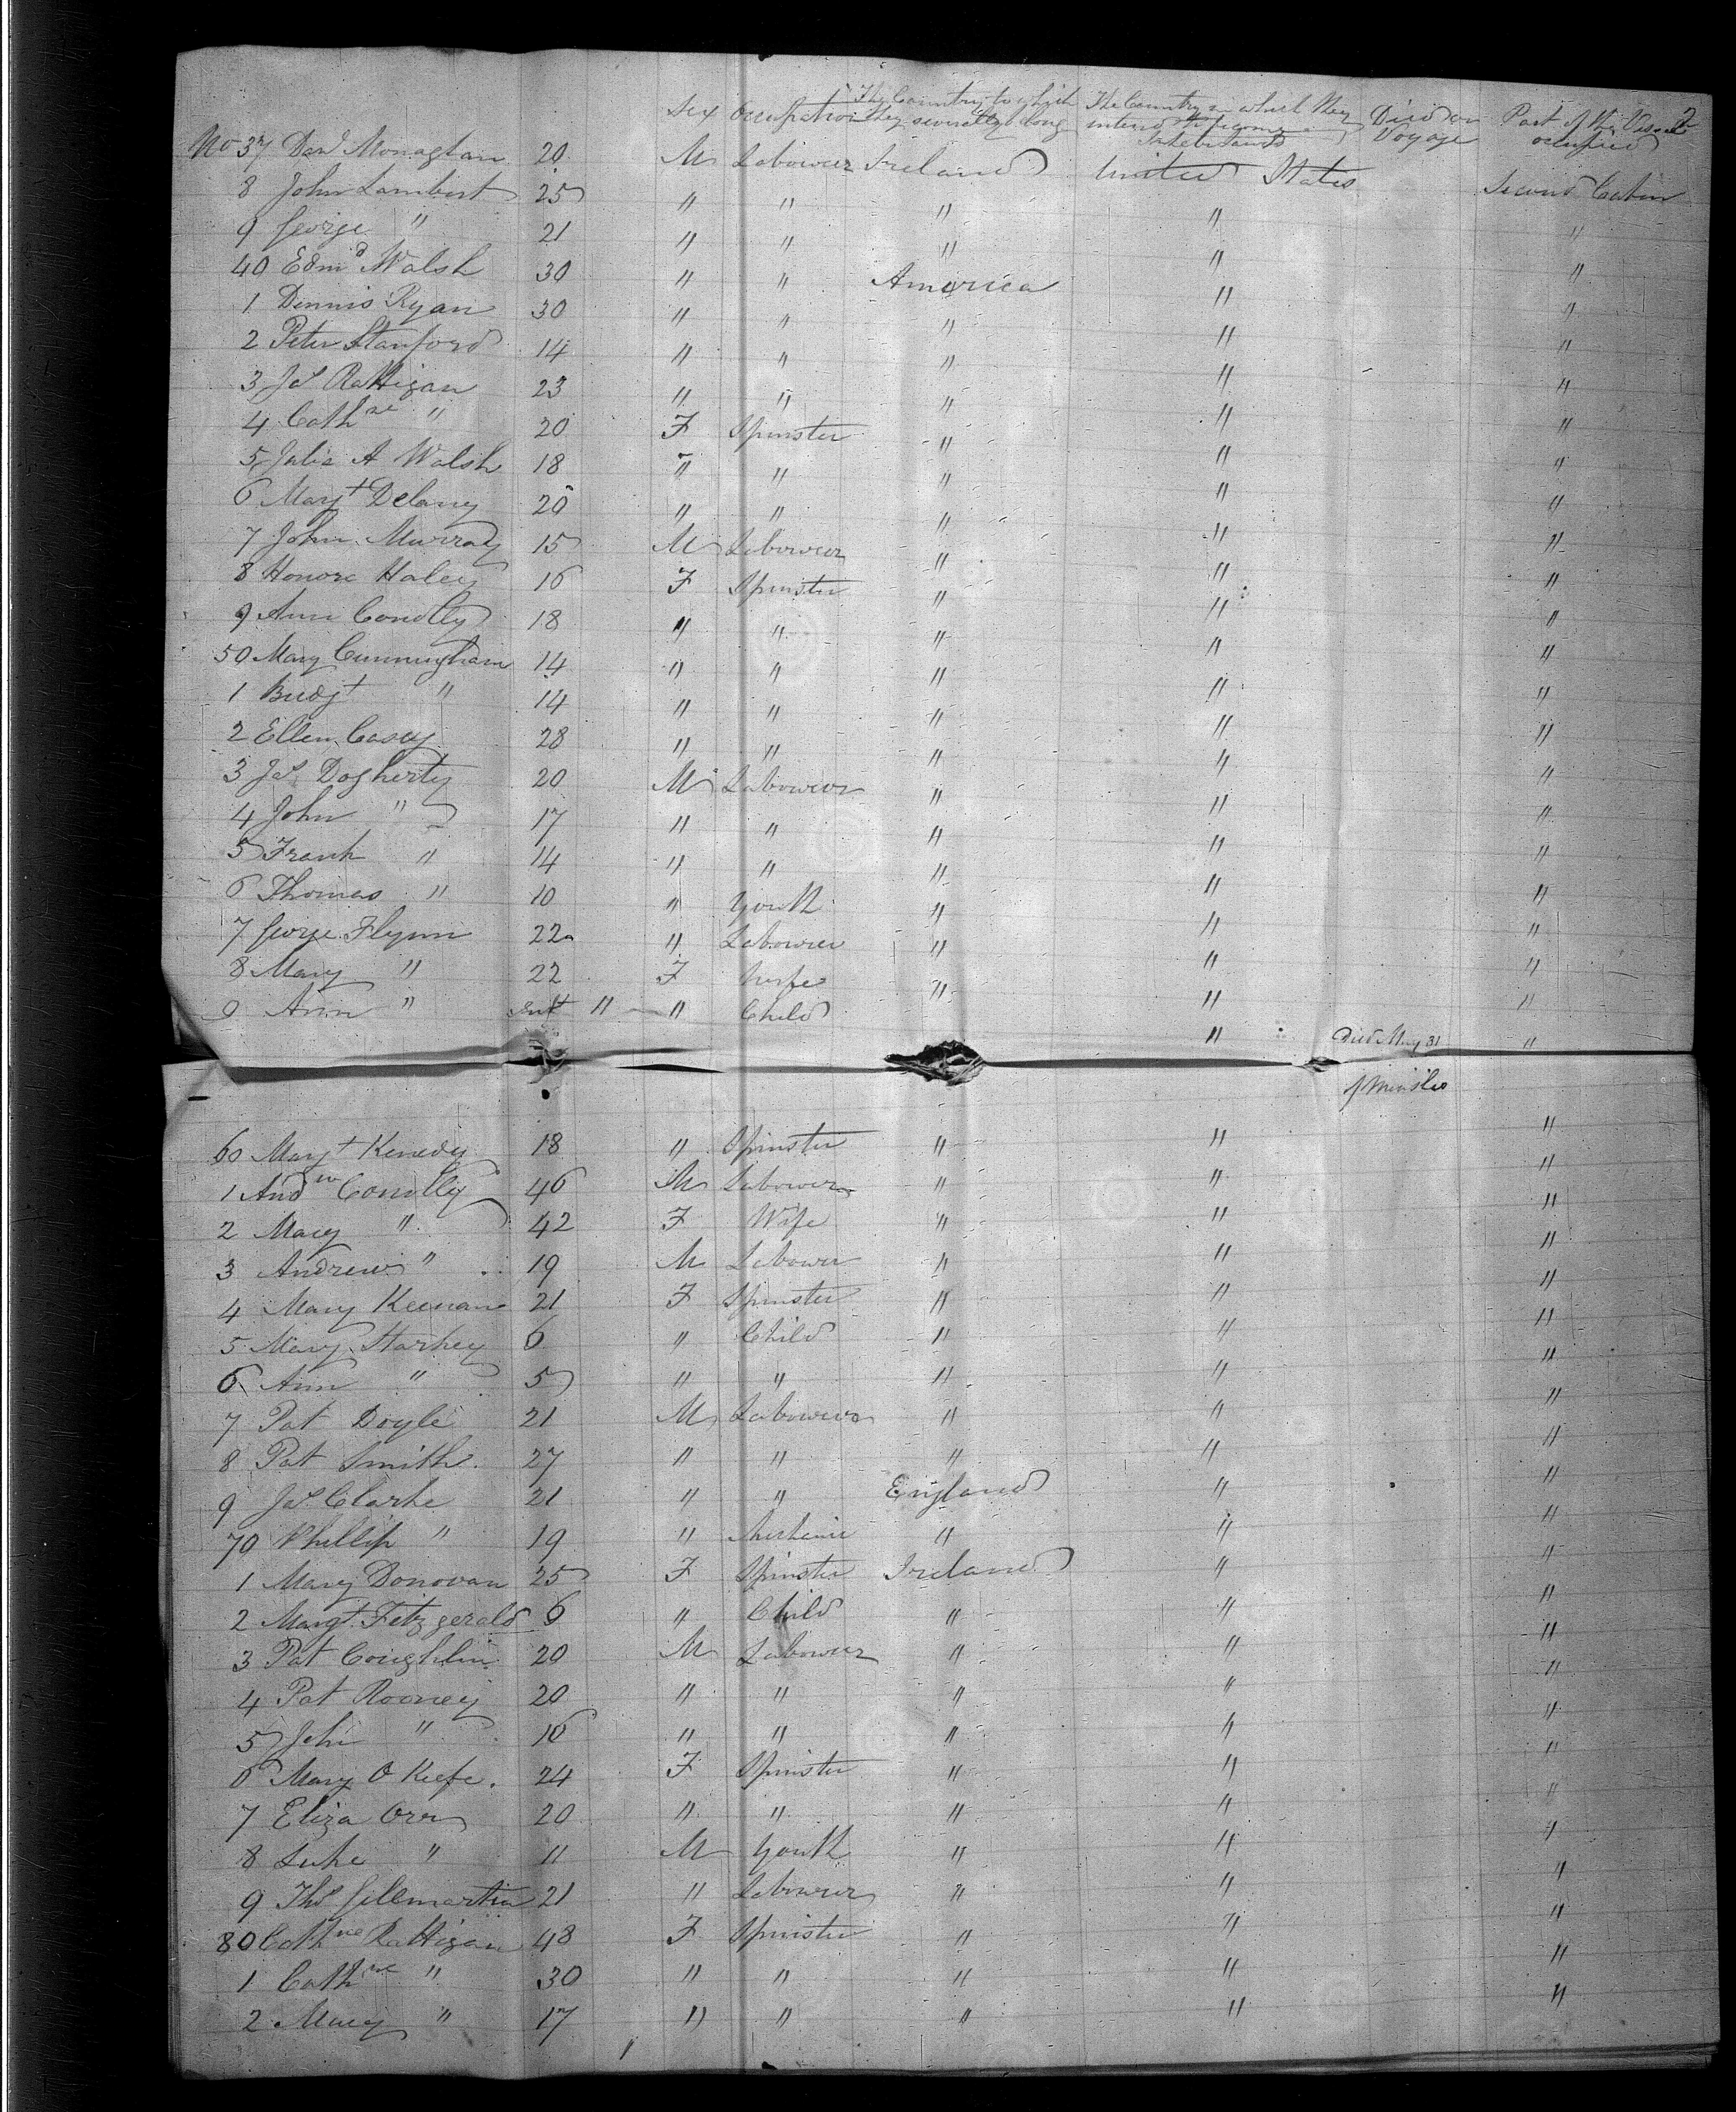 2
Sex Occupation The Country to which they severally belong The Country in which they intend to become Inhabitants Died on Voyage Part of the Vessel occupied
No 37 Danl Monaghan 20 M Labourer Ireland United States Second Cabin
8 John Lambert 25 " " " " "
9 George " 21 " " " " "
40 Edmd Walsh 30 " " America " "
1 Dennis Ryan 30 " " " " "
2 Peter Stanford 14 " " " " "
3 Js Rattigan 23 " " " " "
4 Cathne " 20 F Spinster " " "
5 Julia A Walsh 18 " " " " "
6 Margt Delany 20 " " " " "
7 John Murray 15 M Labourer " " "
8 Honora Haley 16 F Spinster " " "
9 Ann Conolly 18 " " " " "
50 Mary Cunningham 14 " " " " "
1 Bridgt " 14 " " " " "
2 Ellen Casey 28 " " " " "
3 Js Dogherty 20 M Labourer " " "
4 John " 17 " " " " "
5 Frank " 14 " " " " "
6 Thomas " 10 " Youth " " "
7 George Flynn 22 " Labourer " " "
8 Mary " 22 F Wife " " "
9 Ann " Inft " " Child " Died May 31 "
60 Margt Kenedy 18 " Spinster " " "
1 Andw Conolly 46 M Labourer " " "
2 Mary " 42 F Wife " " "
3 Andrew " 19 M Labourer " " "
4 Mary Keenan 21 F Spinster " " "
5 Mary Starkey 6 " Child " " "
6 Ann " 5 " " " " "
7 Pat Doyle 21 M Labourer " " "
8 Pat Smith 27 " " " " "
9 Js Clarke 21 " " England " "
70 Phillip " 19 " " " "
1 Mary Donovan 25 F Spinster Ireland " "
2 Margt Fitzgerald 6 " Child " " "
3 Pat Coughlin 20 M Labourer " " "
4 Pat Rooney 20 " " " " "
5 John " 16 " " " " "
6 Mary O Keefe 24 F Spinster " " "
7 Eliza Orr 20 " " " " "
8 Luke " 11 M Youth " " "
9 Thos Gillmartin 21 " Labourer " " "
80 Cathne Rattigan 48 F Spinster " " "
1 Cathne " 30 " " " " "
2 Mary " 17 " " " " "